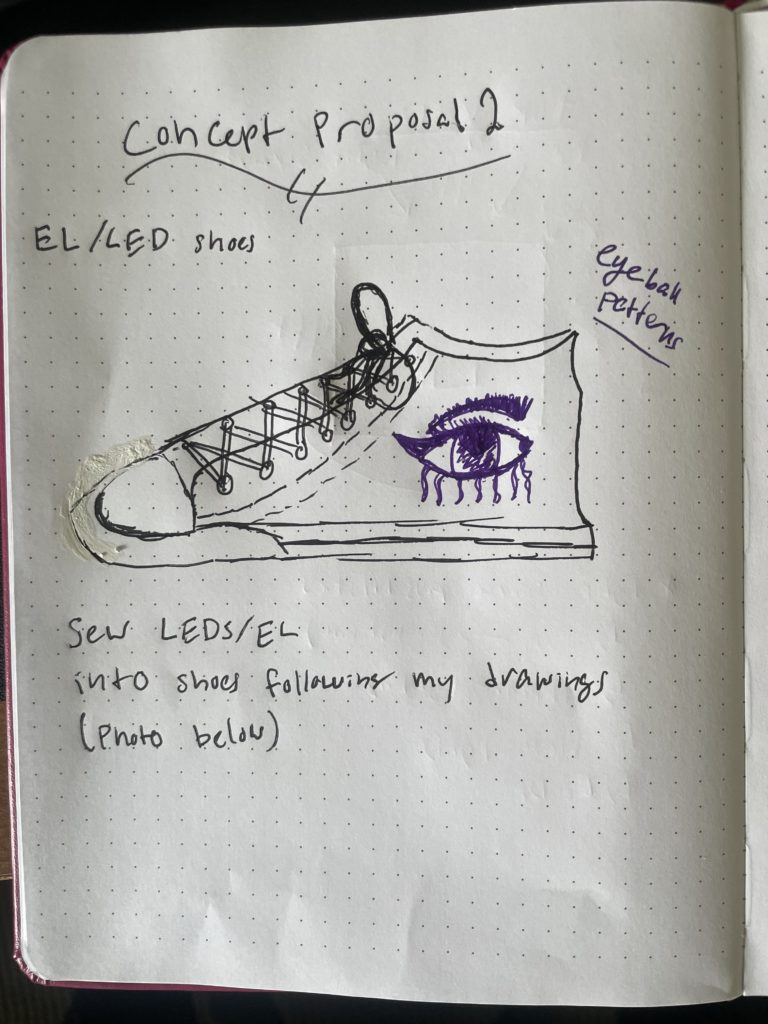 Concept Proposal 2
EL/LED shoes
eyeball
patterns
Sew LEDS/EL
into shoes following my drawings
(Photo below)